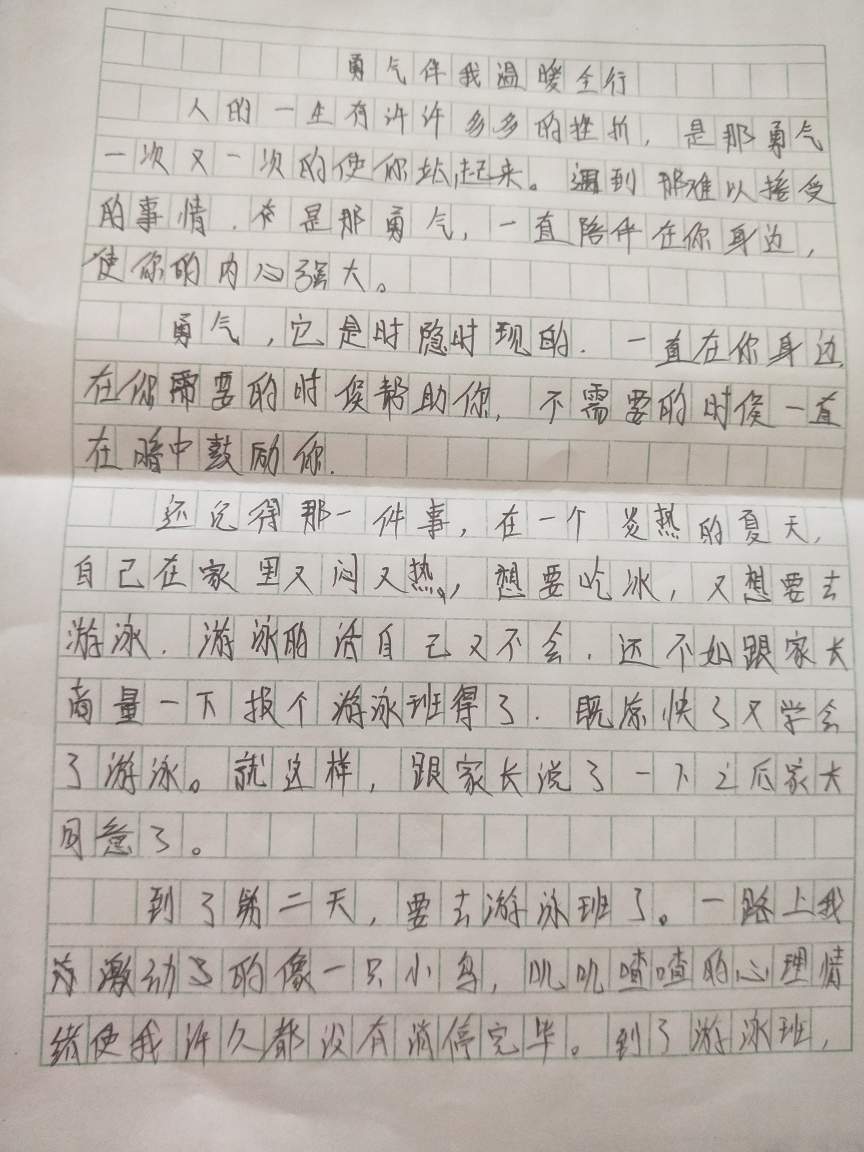 勇气伴我温暖全行
人的一生有许许多多的挫折，是那勇气
一次又一次的使你站起来。遇到那难以接受
的事情，夜是那勇气，一直陪伴在你身边，
使你的内心强大。
勇气，它是时隐时现的．一直在你身边，
在你需要的时侯帮助你，不需要的时侯一直
在暗中鼓励你．
还记得那一件事，在一个炎热的夏天，
自己在家里又闷又热，想要吃冰，又想要去
游泳．游泳的话自己又不会．还不如跟家长
商量一下报个游泳班得了．既凉快了又学会
了游泳。就这样，跟家长说了一下之后家长
同意了。
到了第二天，要去游泳班了。一路上我
激动的像一只小鸟，叽叽喳喳的心理情
绪使我许久都没有消停完毕。到了游泳班，